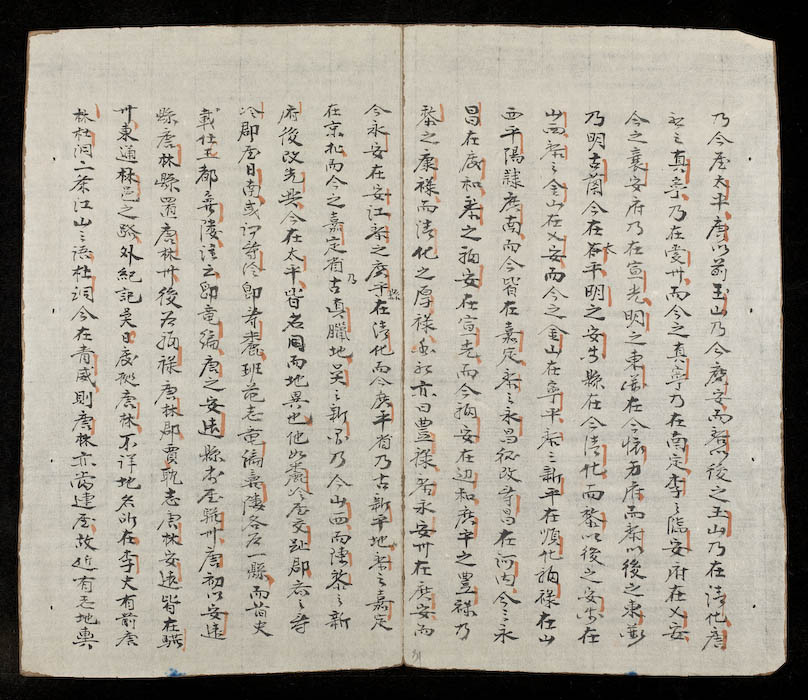 乃今屬太平唐以前玉山乃今廣安而黎以後之玉山乃在清化唐
之真寧乃在愛州而今之真寧乃在南定李之臨安府在乂安
今之襄安府乃在宣光明之東 在今懷 府而黎以後之東 
乃明古蘭今在太平明之安 縣在今清化而黎以後之安 在
山西黎之金山在乂安而今之金山在寧平黎之新平在順化福祿在山
西平陽隸廣南而今皆在嘉定黎之永昌後改壽昌在河內今之永
昌在慶和黎之福安在宣光而今福安在边和廣平之豊祿乃
黎之康祿而清化之厚祿 亦曰豊祿 永安州在廣安而
今永安在安江黎之廣平縣在清化而今廣平省乃古新平地黎之嘉定
在京北而今之嘉定省乃古真臘地吴之新昌乃今山西而陳黎之新
府後改光興今在太平皆名同而地異也他如麊泠屬交趾郡 
泠郡屬日南或 泠即 麊班范志竜編羸婁各为一縣而晋史
載杜玉都羸婁注云即竜編唐之安遠縣 屬驩州唐初以安遠
縣唐林縣置唐林州後为福祿唐林郡賈耽志唐林安遠皆在驩
州東通林邑之路外紀記吴日慶 唐林不詳地名所在李史有前唐
林杜洞一条江山之 杜洞今在青威則唐林亦當連屬故近有 地輿